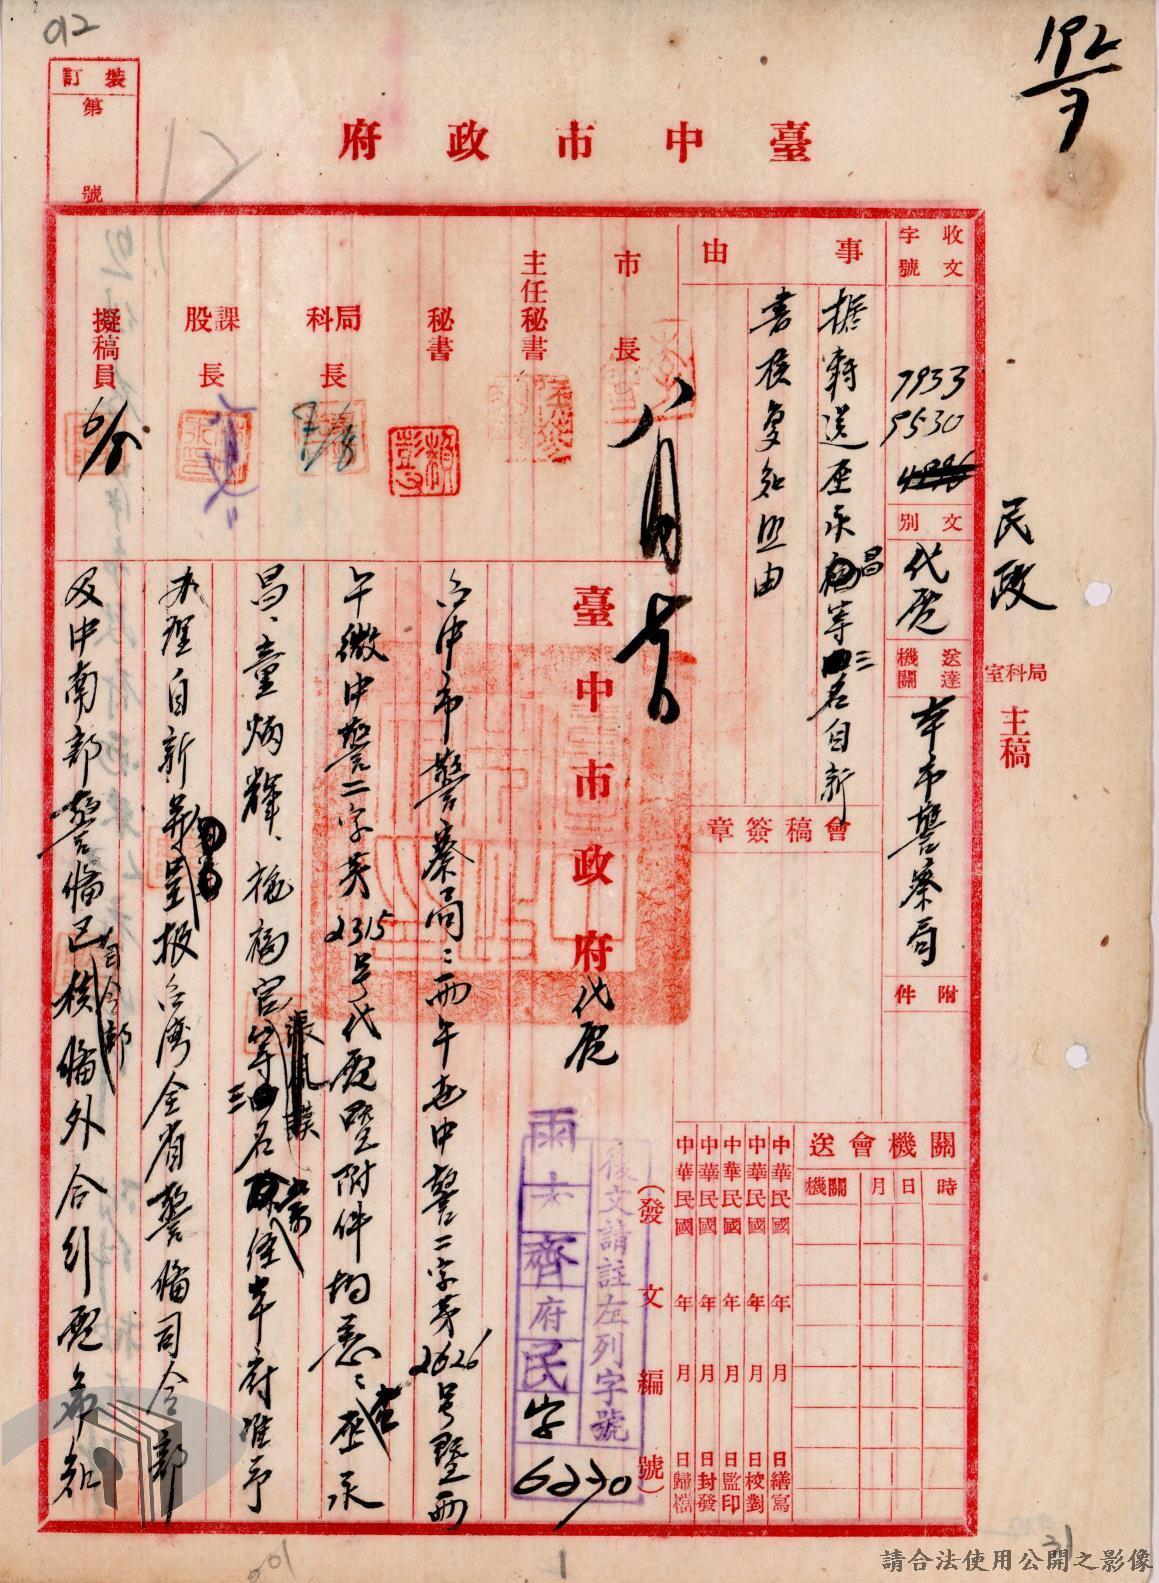 012
192
7
裝訂
第
號
臺中市政府
收文
字號
7933
5530
文別
代電
送達
機關
本市警察局
附件
民政
局科室
主稿
事由
據轉送巫永昌等三名自新
書核復知照由
會稿簽章
市長
八月
主任秘書
秘書
局科長
課股長
擬稿員
6/8
關機會送
時 日 月 機關
中華民國 年 月 日繕寫
中華民國 年 月 日校對
中華民國 年 月 日監印
中華民國 年 月 日封發
中華民國 年 月 日歸檔
(發文編號)
復文請註左列字號
齊府民字
6230
臺中市政府代電
台中市警察局:丙午
中警二字第2626号暨丙
午微中警二字第2315号代電暨附件均悉:巫永
昌、童炳輝、施福官等三名
經本府准予
辦理自新
報台灣全省警備司令部
及中南部警備司令部
核備外合行電希知
請合法使用公開之影像